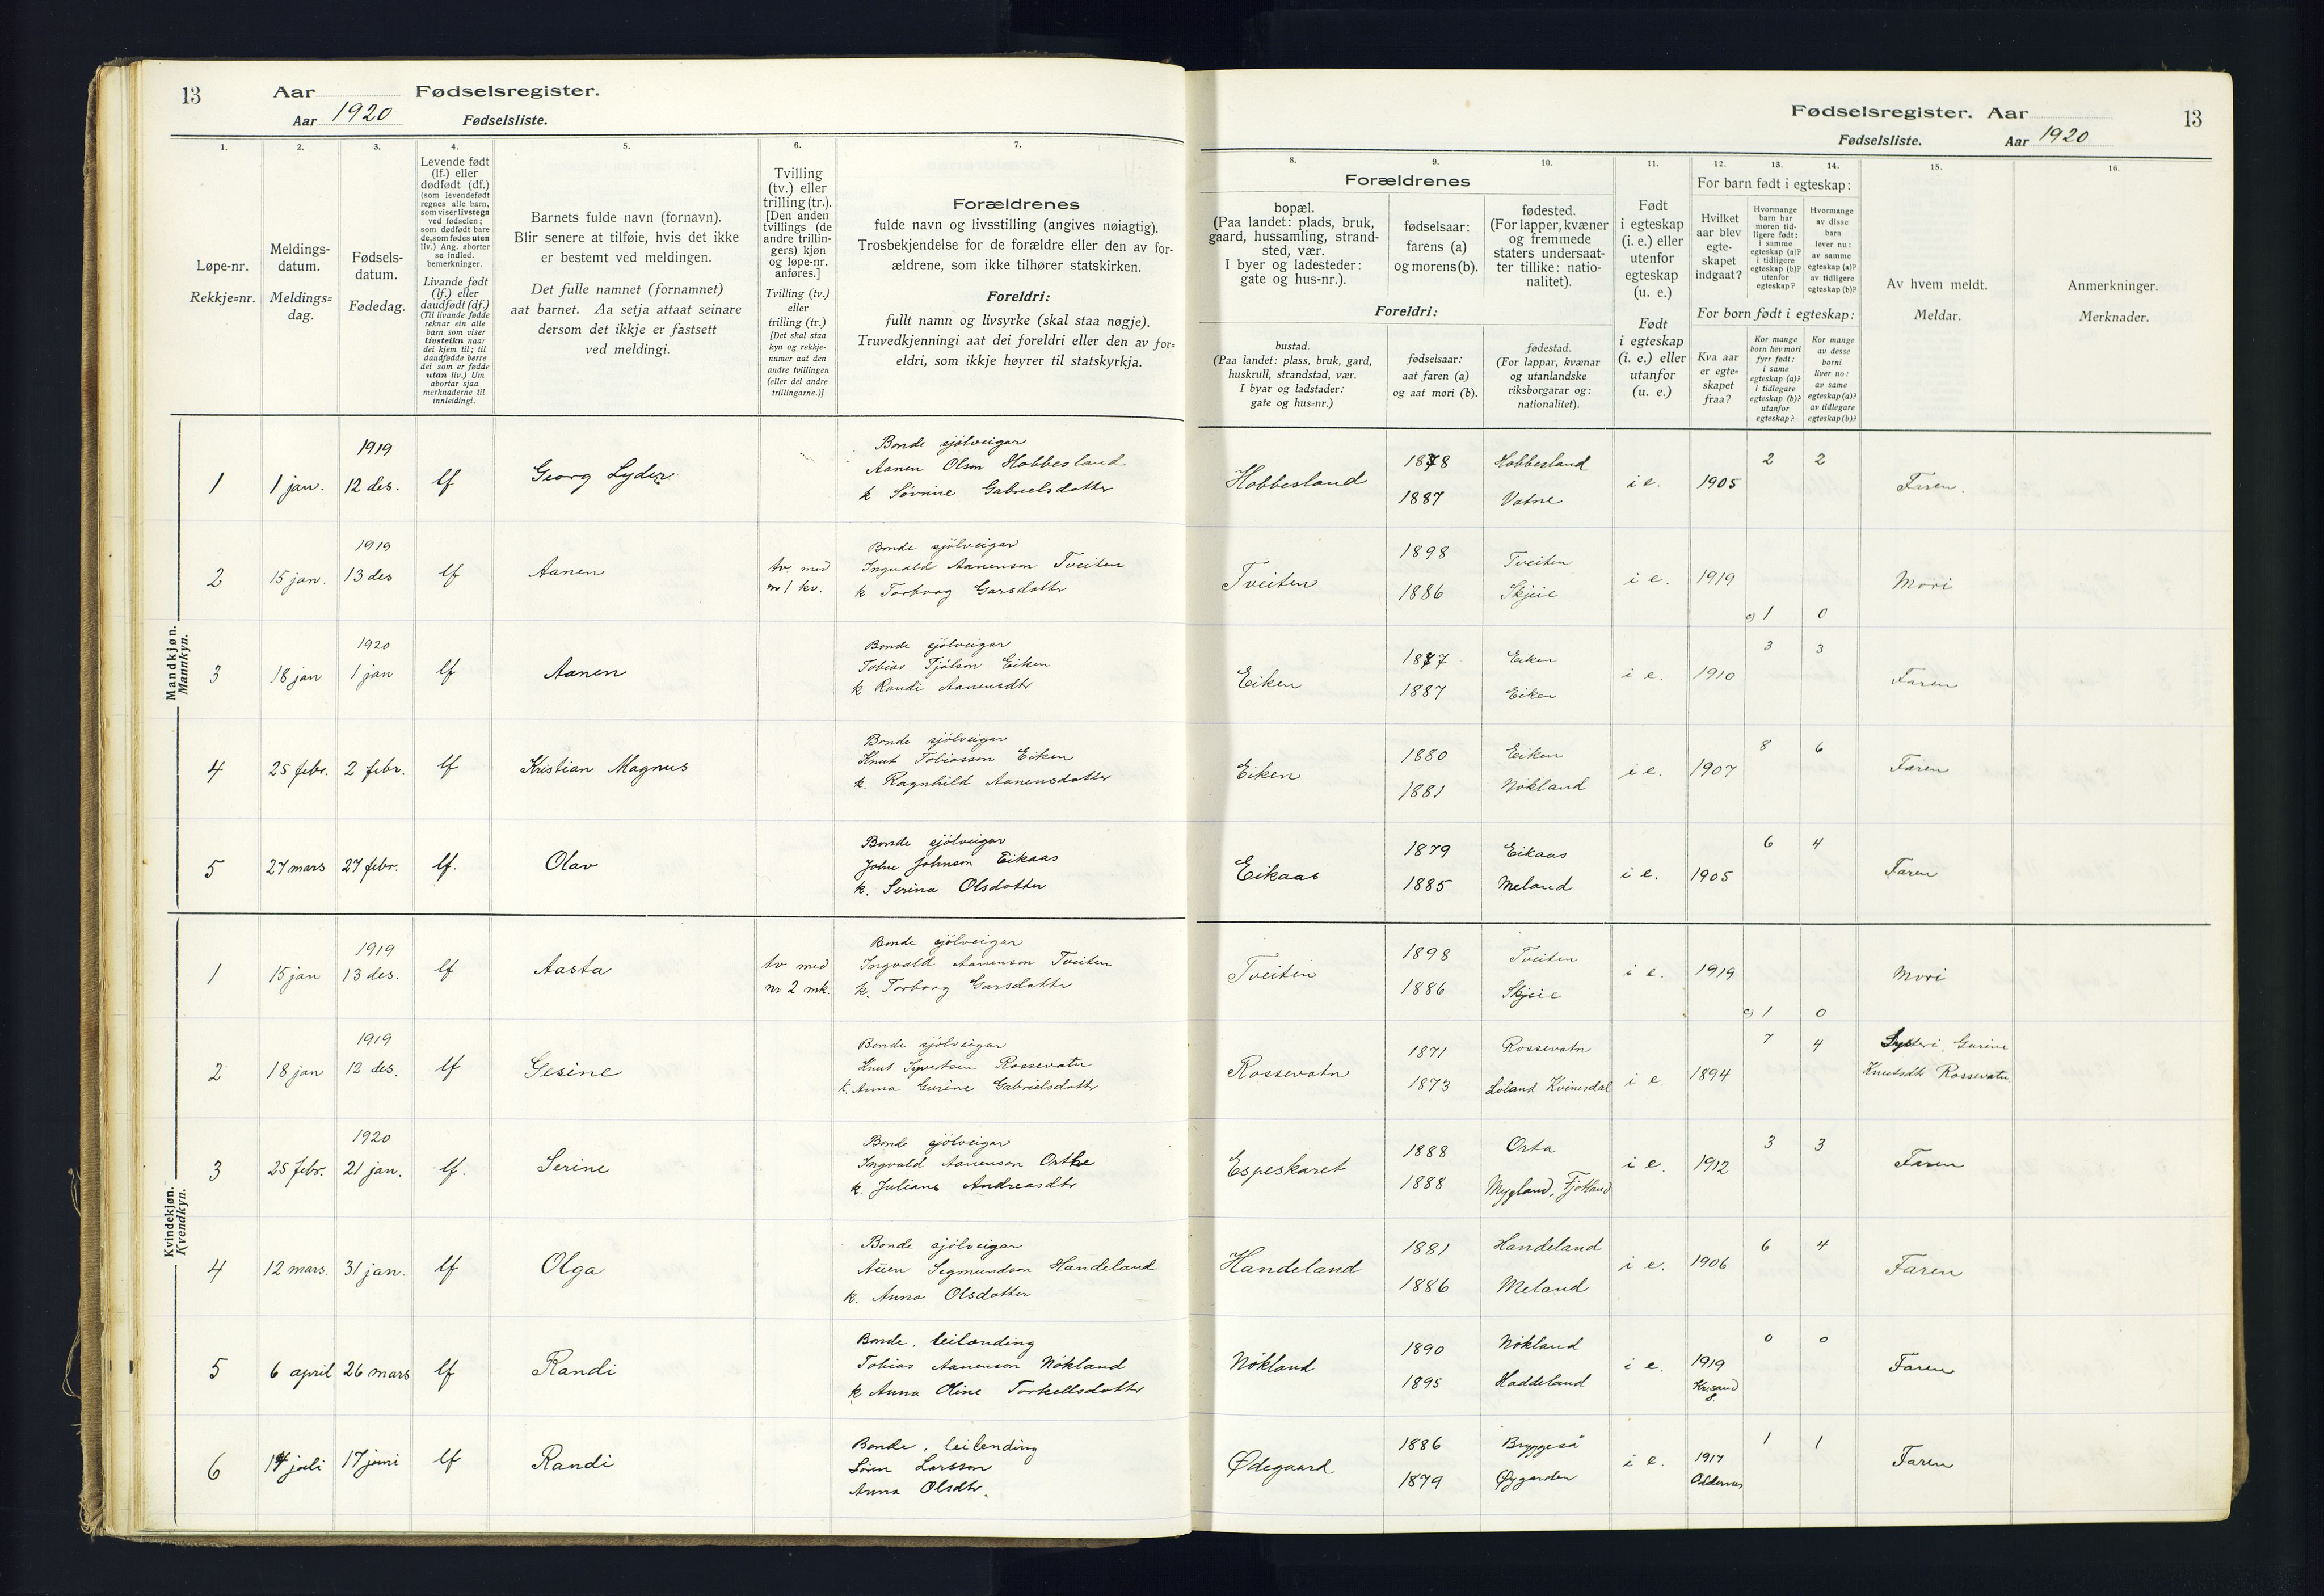 13 Aar Fødselsregister.
Aar 1920 Fødselsliste.
1. 2. 3. 4. 5. 6. 7.
Løpe-nr.
Rekkje=nr.
Meldings-
datum.
Meldings=
dag.
Fødsels-
datum.
Fødedag.
Levende født
(lf.) eller
dødfødt (df.)
(som levendefødt
regnes alle barn,
som viser livstegn
ved fødselen;
som dødfødt bare
de, som fødes uten
liv.) Ang. aborter
se indled.
bemerkninger.
Livande født
(lf.) eller
daudfødt (df.)
(Til livande fødde
reknar ein alle
barn som viser
livsteikn naar
dei kjem til; til
daudfødde berre
dei som er fødde
utan liv.) Um
abortar sjaa
merknaderne til
innleidingi.
Barnets fulde navn (fornavn).
Blir senere at tilføie, hvis det ikke
er bestemt ved meldingen.
Det fulle namnet (fornamnet)
aat barnet. Aa setja attaat seinare
dersom det ikkje er fastsett
ved meldingi.
Tvilling
(tv.) eller
trilling (tr.).
[Den anden
tvillings (de
andre trillin-
gers) kjøn
og løpe-nr.
anføres.]
Tvilling (tv.)
eller
trilling (tr.)
[Det skal staa
kyn og rekkje-
numer aat den
andre tvillingen
(eller dei andre
trillingarne.)]
Forældrenes
fulde navn og livsstilling (angives nøiagtig).
Trosbekjendelse for de forældre eller den av for-
ældrene, som ikke tilhører statskirken.
Foreldri:
fullt namn og livsyrke (skal staa nøgje).
Truvedkjenningi aat dei foreldri eller den av for=
eldri, som ikkje høyrer til statskyrkja.
Mandkjøn.
Mannkyn.
1919 Bonde sjölveigar
1 1 jan. 12 des. lf Georg Lyder Aanen Olson Hobbesland
k Sørine Gabrielsdotter
1919 Bonde sjölveigar
2 15 jan. 13 des lf Aanen tv. med Ingvald Aanenson Tveiten
nr 1 kv. k Torborg Garsdottr
1920 Bonde sjölveigar
3 18 jan 1 jan lf Aanen Tobias Tjölson Eiken
k Randi Aanensdtr
Bonde sjölveigar
4 25 febr. 2 febr. lf Kristian Magnus Knut Tobiasson Eiken
k. Ragnhild Aanensdotter
Bonde sjölveigar
5 27 mars 27 febr. lf. Olav Johnson Eikaas
k. Serina Olsdotter
Kvindekjøn.
Kvendkyn.
1919 Bonde sjölveigar
1 15 jan 13 des. lf Aasta tv med Ingvald Aanenson Tveiten
nr 2 mk. k. Torborg Garsdottr
1919 Bonde sjölveigar
2 18 jan 12 des. lf Gesine Knut Syvertsen Rossevatn
k. Anna Gurine Gabrielsdotter
1920 Bonde sjölveigar
3 25 febr. 21 jan. lf. Serine Ingvald Aanenson
k. Juliane Andreasdtr
Bonde sjölveigar
4 12 mars. 31 jan. lf Olga Segmundson Handeland
k. Anna Olsdotter
Bonde, leilending
5 6 april 26 mars lf Randi Tobias Aanenson Nökland
k Anna Oline Torkellsdottr
Bonde, leilending
6 14 juli 17 juni lf Randi Sören Larsson
Anna Olsdtr.
Fødselsregister. Aar 13
Fødselsliste. Aar 1920
8. 9. 10. 11. 12. 13. 14. 15. 16.
Forældrenes
bopæl.
(Paa landet: plads, bruk,
gaard, hussamling, strand-
sted, vær.
I byer og ladesteder:
gate og hus-nr.).
fødselsaar:
farens (a)
og morens (b).
fødested.
(For lapper, kvæner
og fremmede
staters undersaat-
ter tillike: natio-
nalitet).
Foreldri:
bustad.
(Paa landet: plass, bruk, gard,
huskrull, strandstad, vær.
I byar og ladstader:
gate og hus=nr.)
fødselsaar:
aat faren (a)
og aat mori (b).
fødestad.
(For lappar, kvænar
og utanlandske
riksborgarar og:
nationalitet).
Født
i egteskap
(i. e.) eller
utenfor
egteskap
(u. e.)
Født
i egteskap
(i. e.) eller
utanfor
(u. e.)
For barn født i egteskap:
Hvilket
aar blev
egte-
skapet
indgaat?
Hvormange
barn har
moren tid-
ligere født:
i samme
egteskap (a)?
i tidligere
egteskap (b)?
utenfor
egteskap?
Hvormange
av disse
barn
lever nu:
av samme
egteskap (a)?
av tidligere
egteskap (b)?
For born født i egteskap:
Kva aar
er egte=
skapet
fraa?
Kor mange
born hev mori
fyrr født:
i same
egteskap (a)?
i tidlegare
egteskap (b)?
utanfor
egteskap?
Kor mange
av desse
borni
liver no:
av same
egteskap (a)?
av tidlegare
egteskap (b)?
Av hvem meldt.
Meldar.
Anmerkninger.
Merknader.
Hobbesland 1878 Hobbesland i e. 1905 2 2 Faren.
1887 Vatne
Tveiten 1898 Tveiten i e. 1919 Mori
1886 Skjeie c) 1 0
Eiken 1877 Eiken i e. 1910 3 3 Faren
1887 Eiken
Eiken 1880 Eiken i e. 1907 8 6 Faren
1881 Nökland
Eikaas 1879 Eikaas i e. 1905 6 4 Faren
1885 Meland
Tveiten 1898 Tveiten i e. 1919 Mori
1886 Skjeie c) 1 0
Rossevatn 1871 Rossevatn i e. 1894 7 4 Systeri, Gurine
1873 Loland Kvinesdal Knutsdtr Rossevatn
Espeskaret 1888 Osta i e. 1912 3 3 Faren
1888 Mygland, Fjotland
Handeland 1881 Handeland i e. 1906 6 4 Faren
1886 Meland
Nökland 1890 Nökland i e. 1919 0 0 Faren
1895 Haddeland Krsand
S.
Ødegaard 1886 Bryggeså i e. 1917 1 1 Faren
1879 Øygarden Oddernes